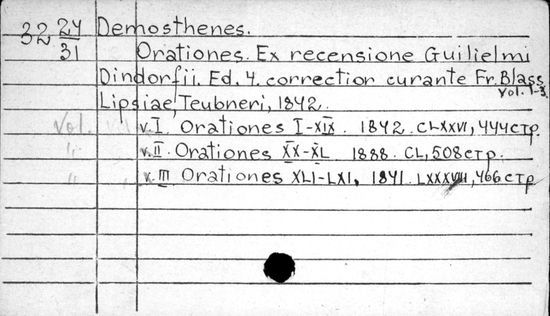 32 24/31 Demosthenes.
Orationes. Ex recensione Guilielmi
Dindorfii. Ed. 4. correctior curante Fr. Blass
Vol. 1-3.
Lipsiae, Teubneri, 1842.
Vol. v. I. Orationes I-XIX. 1842. CLXXVI, 444 стр.
" v. II. Orationes XX-XL. 1888. CL, 508 стр.
" v. III Orationes XLI-LXI, 1841. LXXXVIII, 466 стр